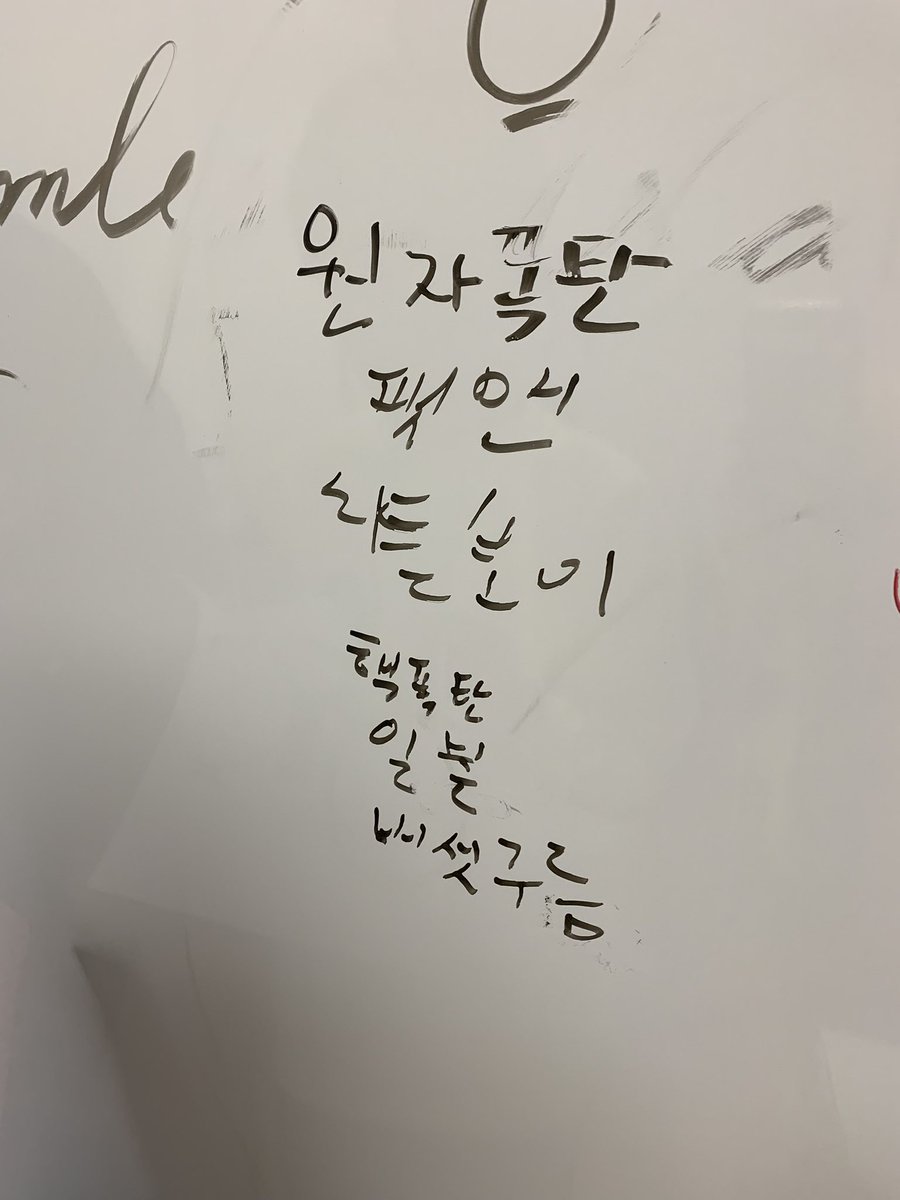 원자폭탄
팻맨
리틀보이
핵폭탄
일본
버섯구름